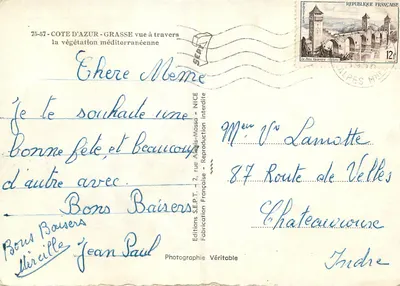 75-57 - COTE D'AZUR - GRASSE vue à travers
la végétation méditerranéenne
Chere Meme
Je te souhaite une
bonne fete, et beaucoup
d'autre avec.
Bons Baisers
Jean Paul
Bons Baisers
Mireille
Editions S.E.P.T. - 2, rue - NICE
Fabrication Française - Reproduction interdite
Photographie Véritable
S.E.P.T.
REPUBLIQUE FRANÇAISE
12f
ALPES
Mme Ve Lamotte
87 Route de Velles
Chateauroux
Indre